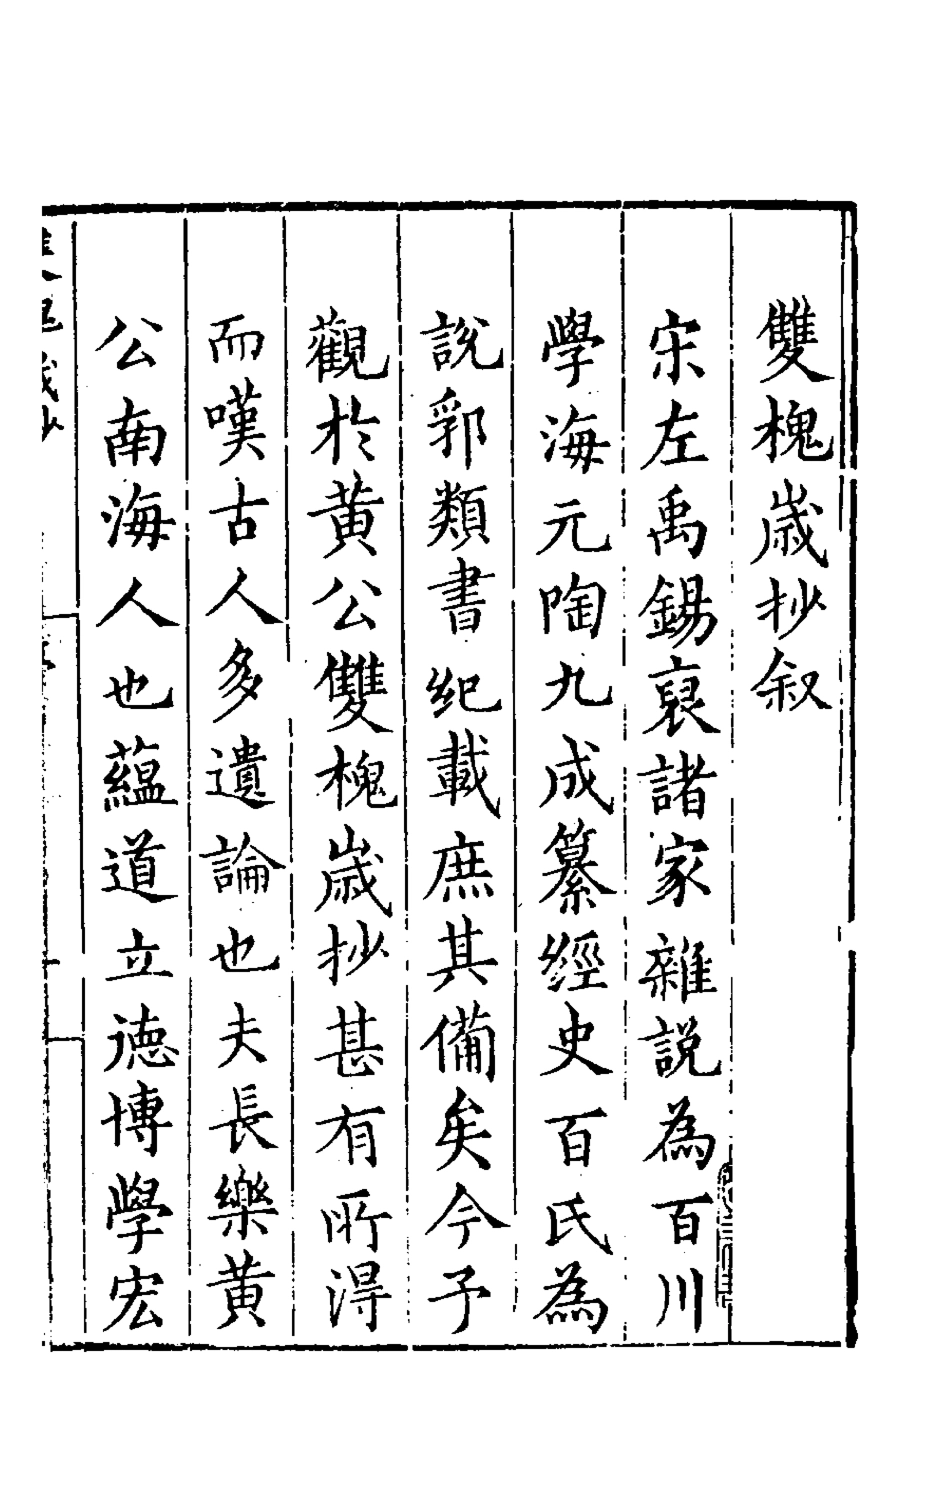 雙槐歲抄叙
宋左禹錫裒諸家雜説為百川
學海元陶九成纂經史百氏為
說郛類書紀載庶其備矣今予
觀於黃公雙槐歲抄甚有所淂
而嘆古人多遺論也夫長樂黃
公南海人也蘊道立徳博學宏